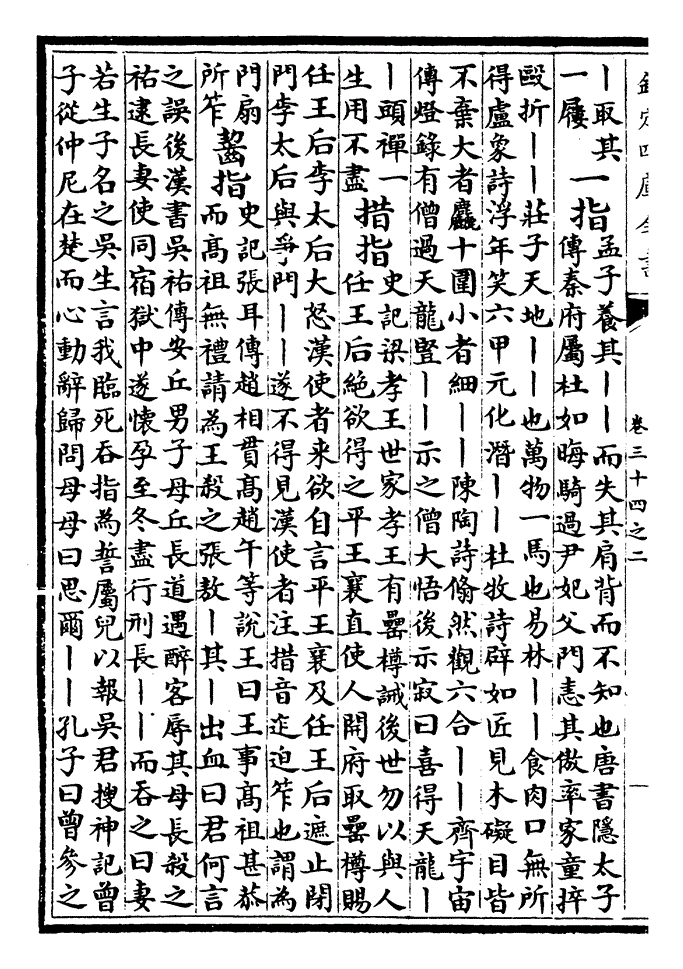 欽定四庫全書
卷三十四之二
丨取其
一屨
一指
孟子養其丨丨而失其肩背而不知也唐書隱太子
傳秦府屬杜如晦騎過尹妃父門恚其傲率家童捽
毆折丨丨莊子天地丨丨也萬物一馬也易林丨丨食肉口無所
得盧象詩浮年笑六甲元化潛丨丨杜牧詩辟如匠見木礙目皆
不棄大者麤十圍小者細丨丨陳陶詩翛然觀六合丨丨齊宇宙
傳燈錄有僧過天龍豎丨丨示之僧大悟後示寂曰喜得天龍丨
丨頭禪一
生用不盡
措指
史記梁孝王世家孝王有罍樽誡後世勿以與人
任王后絶欲得之平王襄直使人開府取罍樽賜
任王后李太后大怒漢使者来欲自言平王襄及任王后遮止閉
門李太后與爭門丨丨遂不得見漢使者注措音迮迫笮也謂為
門扇
所笮
齧指
史記張耳傳趙相貫髙趙午等說王曰王事髙祖甚恭
而髙祖無禮請為王殺之張敖丨其丨出血曰君何言
之誤後漢書吳祐傳安丘男子母丘長道遇醉客辱其母長殺之
祐逮長妻使同宿獄中遂懷孕至冬盡行刑長丨丨而吞之曰妻
若生子名之吳生言我臨死吞指為誓屬兒以報吳君搜神記曾
子從仲尼在楚而心動辭歸問母母曰思爾丨丨孔子曰曾參之